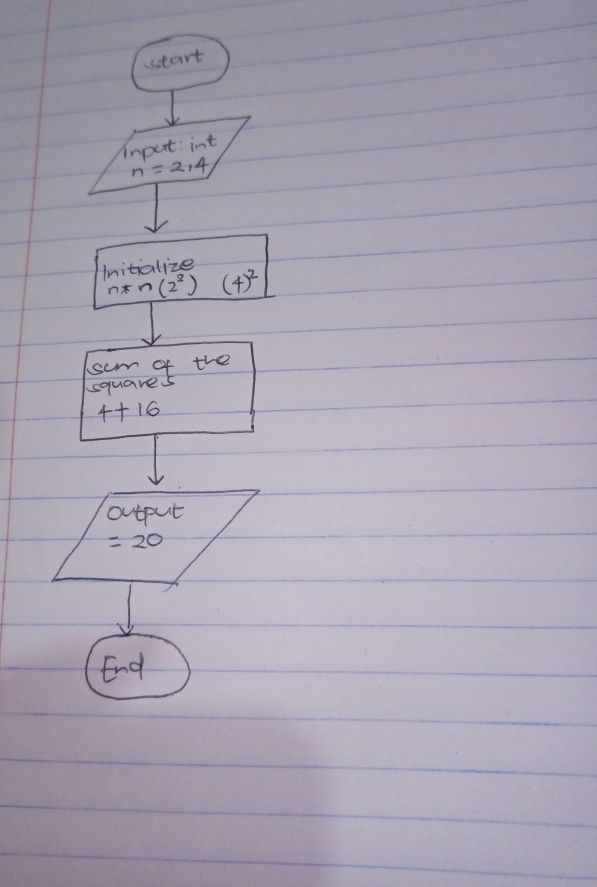 start
Input: int
n = 2,4
Initialize
n* n (2²) (4)²
sum of the
squares
4+16
output
= 20
End